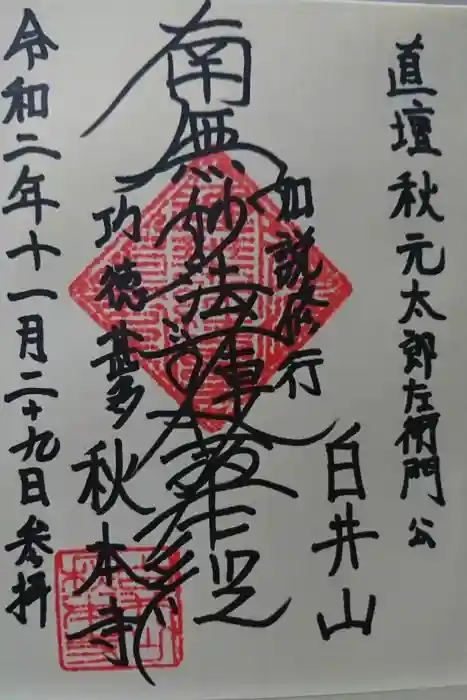 直壇 秋元太郎左衛門公
白井山
如説修行
南無妙法蓮華経
功徳甚多
秋本寺
令和二年十一月二十九日参拝